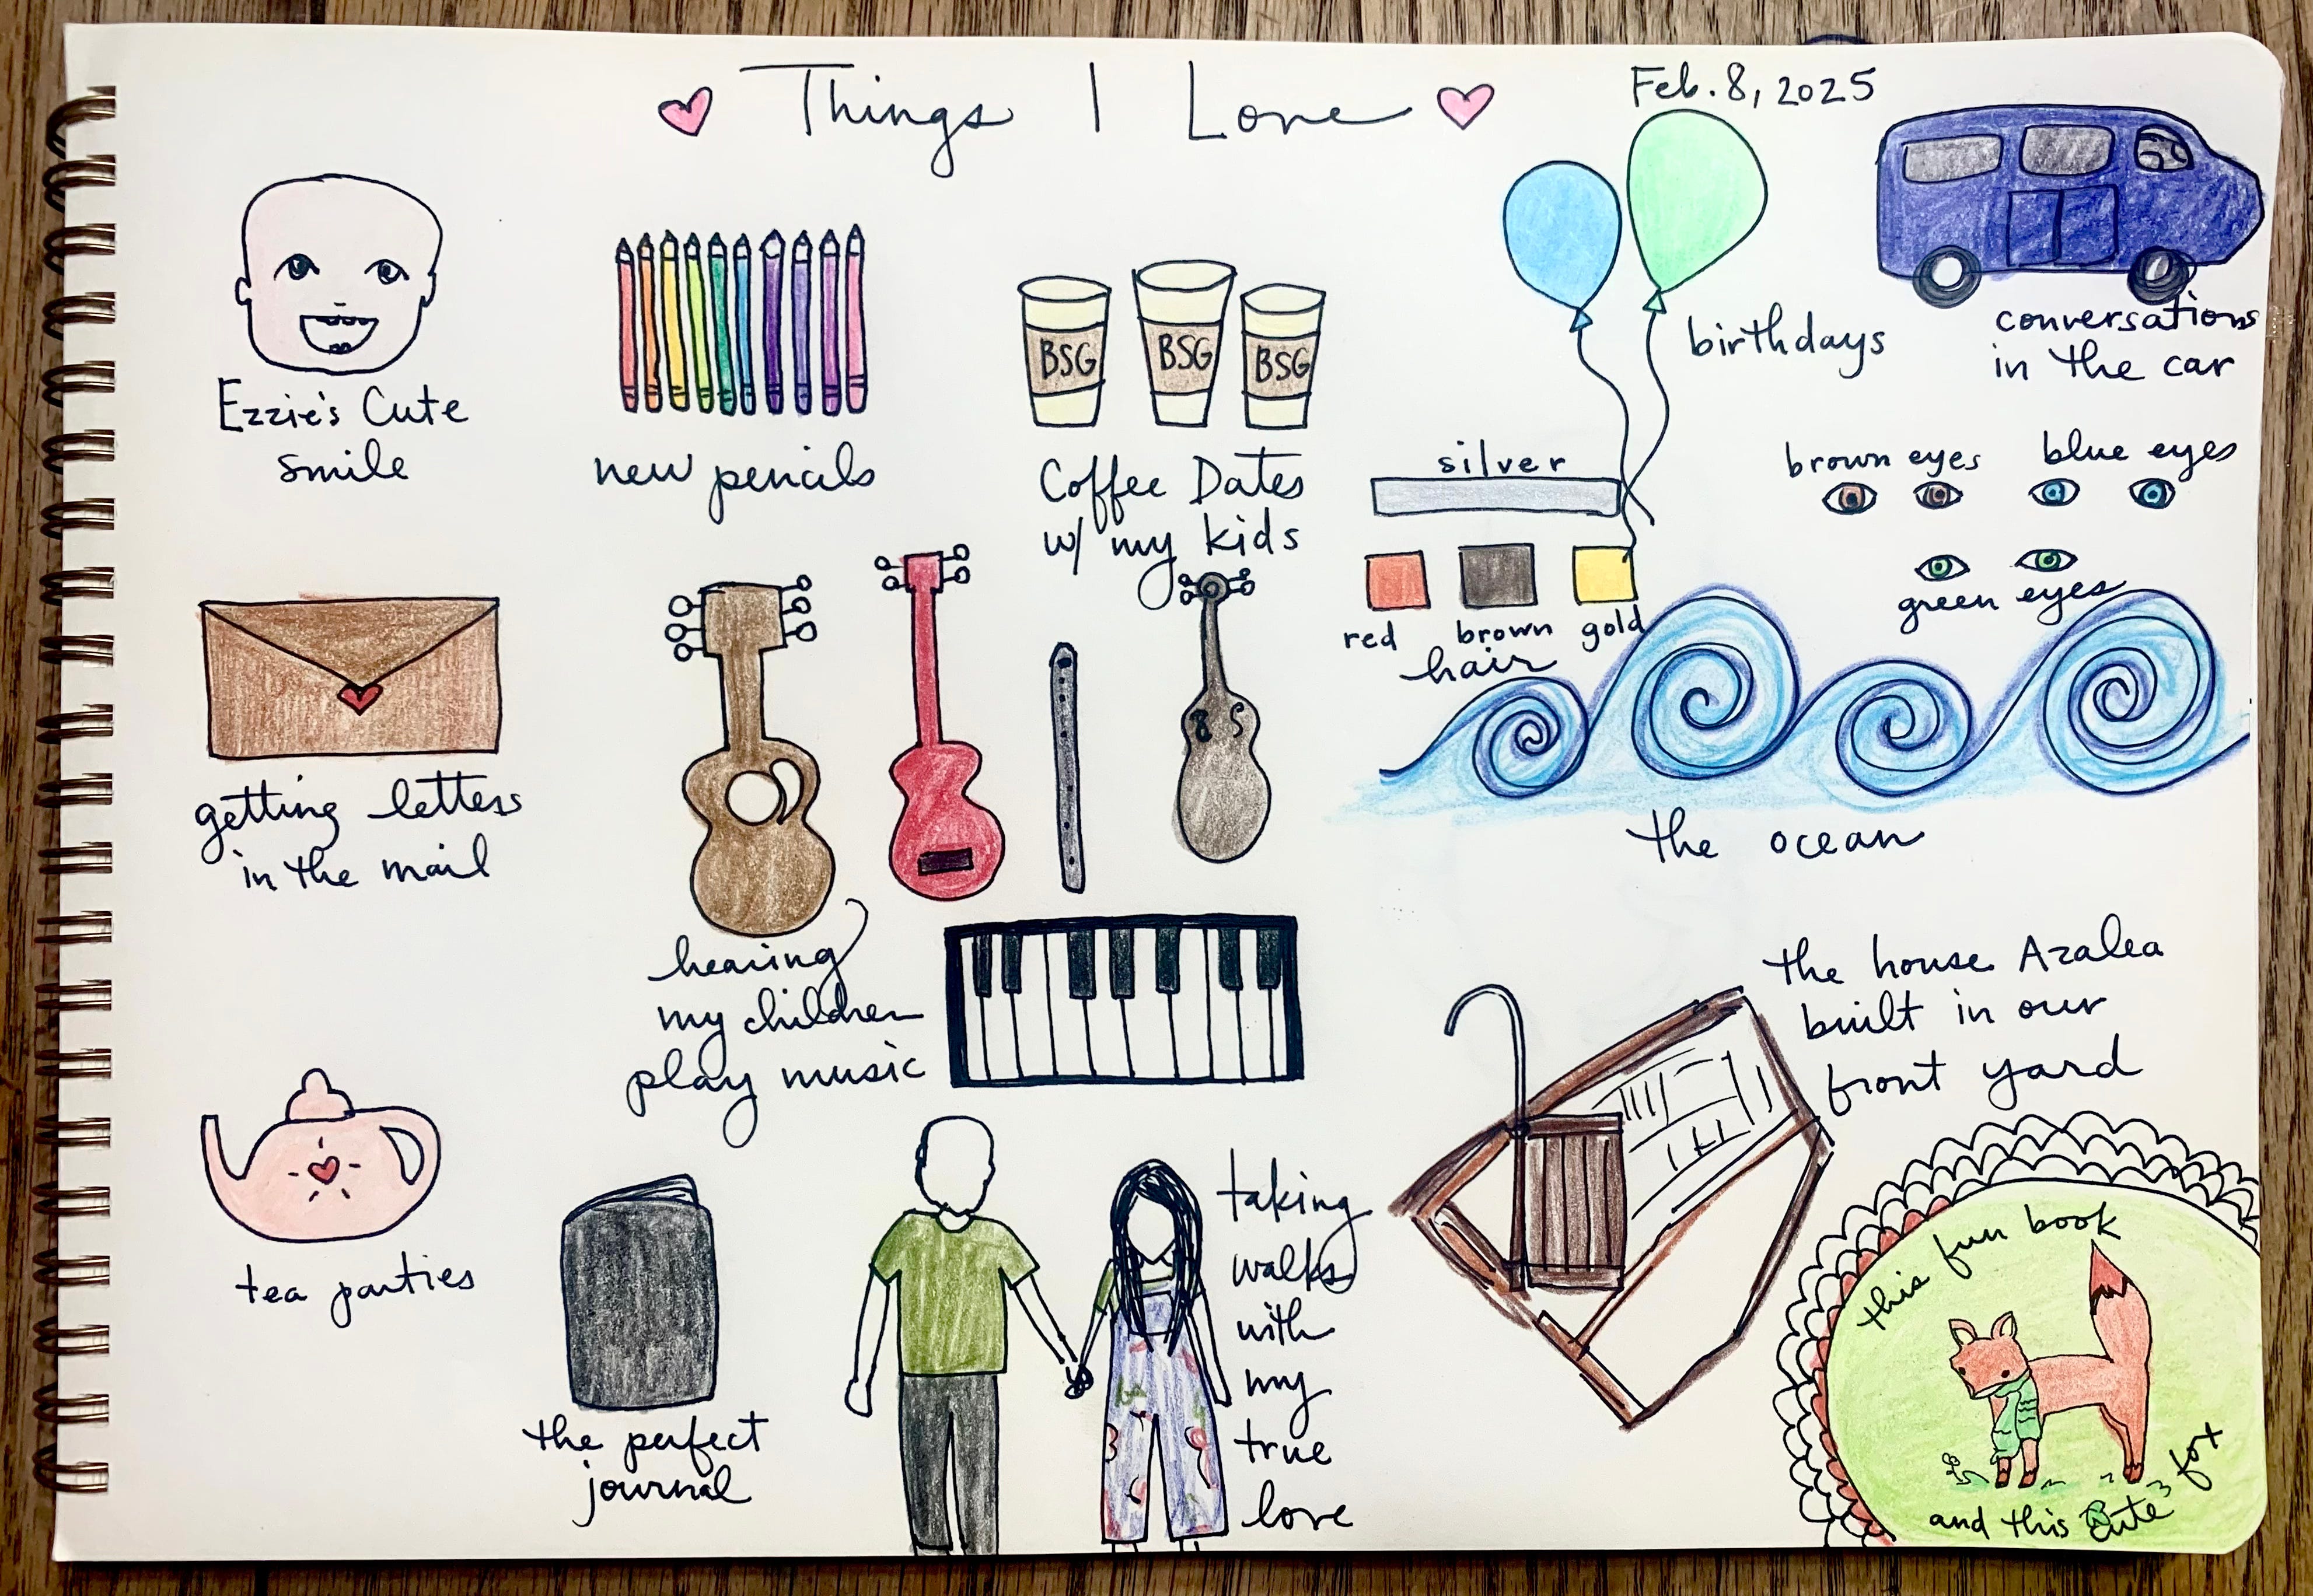 Things I Love
Feb. 8, 2025
Ezzie's Cute
smile
new pencils
BSG
BSG
BSG
Coffee Dates
w/ my kids
birthdays
conversations
in the car
silver
red brown gold
hair
brown eyes
blue eyes
green eyes
getting letters
in the mail
hearing
my children
play music
the ocean
the house Azalea
built in our
front yard
tea parties
the perfect
journal
taking
walks
with
my
true
love
this fun book
and this cute fox